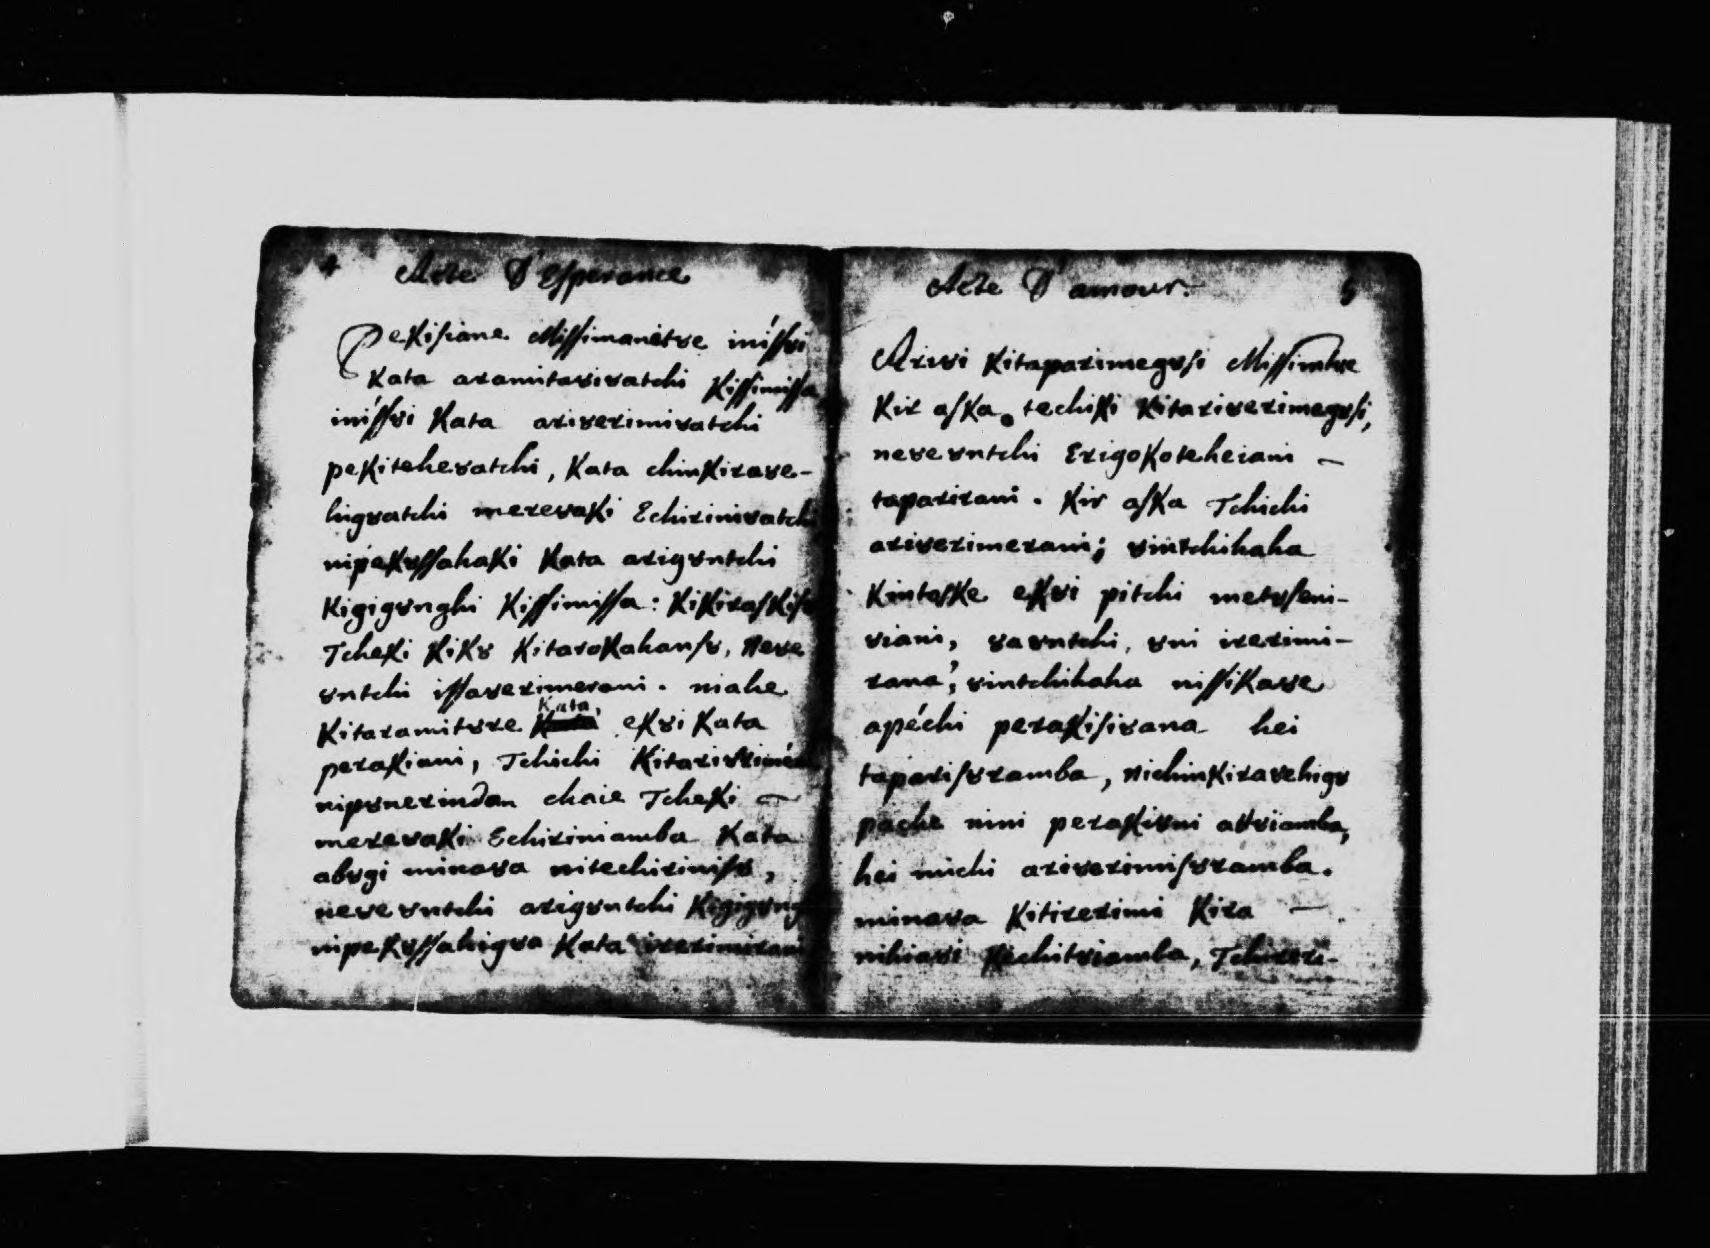 4 Acte D'Esperance
Pekisiane Missimanetȣe inissȣi
Kata aramitaȣiȣatchi Kissimissa
inissȣi Kata ariȣerimiȣatchi
pekiteheȣatchi, Kata chinkiraȣe-
higȣatchi mereȣaki Echiriniȣatchi
nipekȣssahaki Kata arigȣntchi
Kigigȣnghi Kissimissa:
Tcheki Kikȣ Kitarokahansȣ, neȣe
ȣntchi issaȣerimerani. niahe
Kitaramitȣre Kata, ekȣi Kata
perakiani, Tchichi
nipȣnerindan chaie Tcheki —
mereȣaki Echiriniamba Kata
abȣgi minaȣa nitechirinisȣ,
neȣe ȣntchi arigȣntchi
nipekȣssahigȣa Kata irerimirani
Acte D'amour. 5
Ariȣi Kitaparimegȣsi
Kir aska techiki Kitariȣerimegȣsi,
neȣe ȣntchi Erigokoteheiani —
taparirani. Kir aska Tchichi
ariȣerimerani; ȣintchihaha
Kintaske ekȣi pitchi metȣseni-
ȣiani, ȣaȣntchi, ȣni irerimi-
rana, ȣintchihaha nissikaȣe
apéchi perakisiȣana hei
taparisȣramba, nichinkiraȣehigȣ
pache nini perakiȣni
hei nichi ariȣerimisȣramba.
minaȣa Kitirerimi Kira —
nihiaȣi Kechitȣiamba, Tchireri-